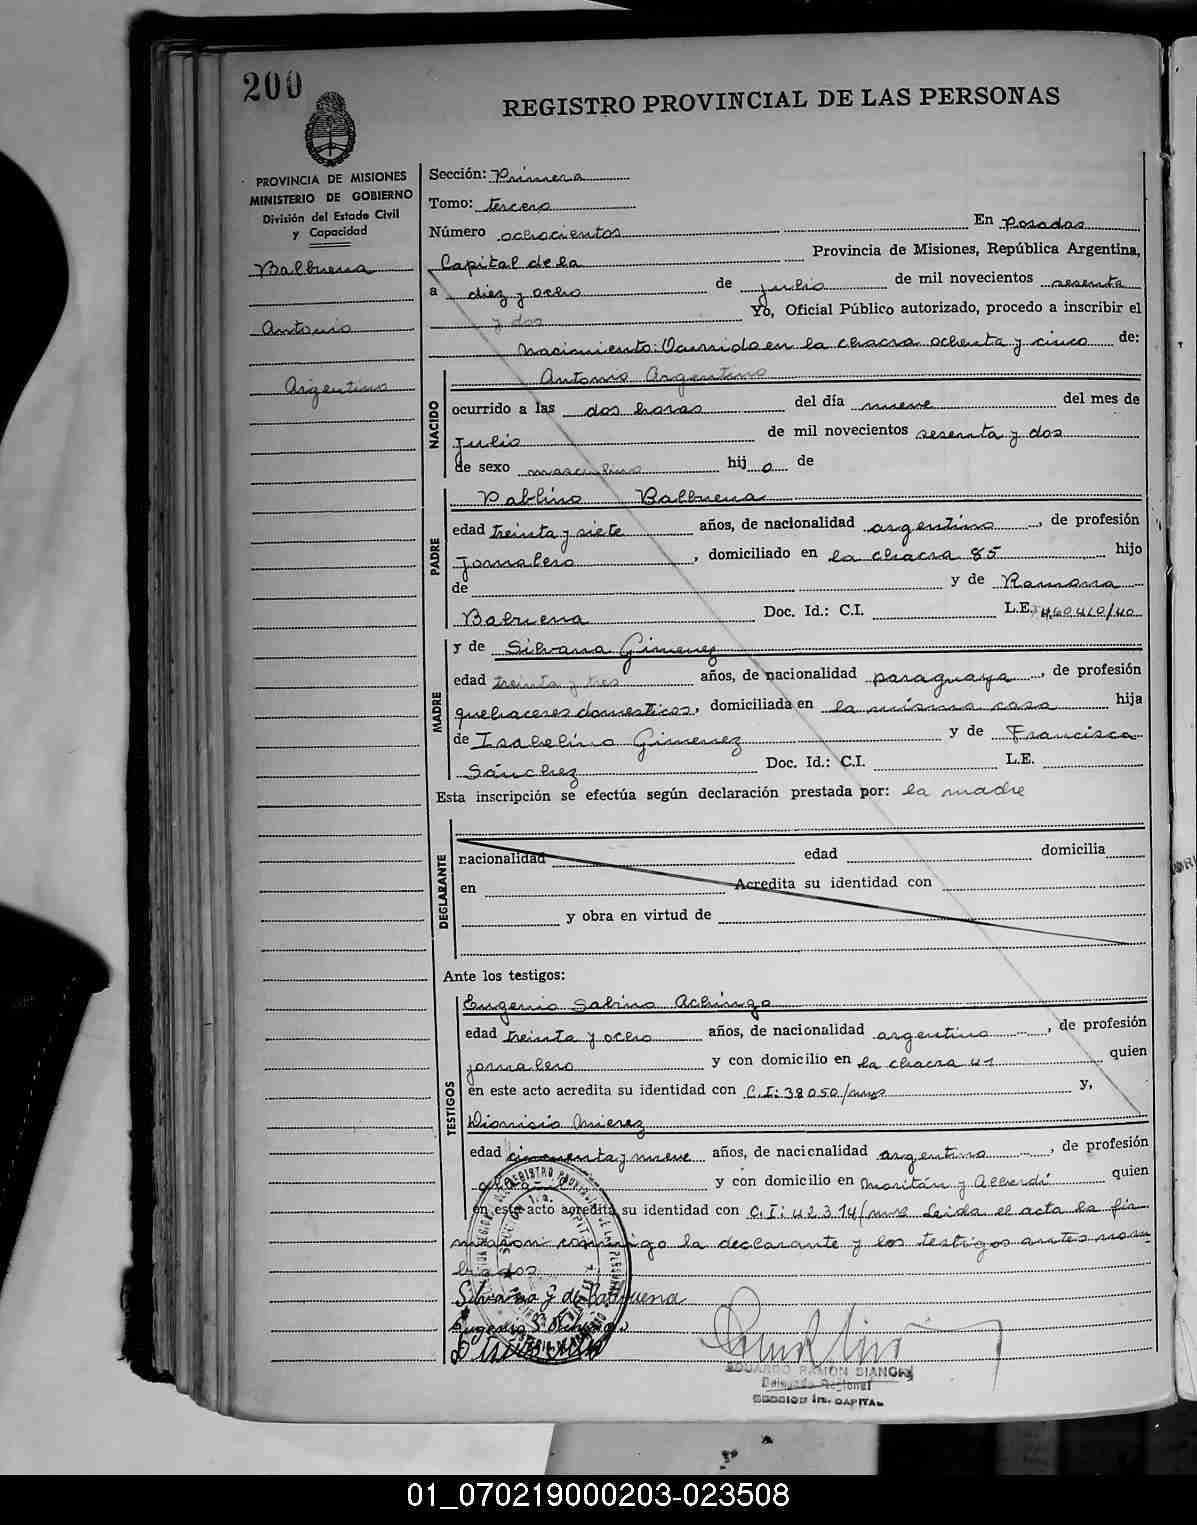 200
REGISTRO PROVINCIAL DE LAS PERSONAS
PROVINCIA DE MISIONES
MINISTERIO DE GOBIERNO
División del Estado Civil
y Capacidad
Balbuena
Antonio
Argentino
Sección: Primera
Tomo: tercero
Número ochocientos En Posadas
Capital de la Provincia de Misiones, República Argentina,
a diez y ocho de julio de mil novecientos sesenta
y dos Yo, Oficial Público autorizado, procedo a inscribir el
nacimiento: Ocurrido en la chacra ochenta y cinco de:
NACIDO
Antonio Argentino
ocurrido a las dos horas del día nueve del mes de
Julio de mil novecientos sesenta y dos
de sexo masculino hijo de
PADRE
Pablino Balbuena
edad treinta y siete años, de nacionalidad argentino, de profesión
Jornalero, domiciliado en la chacra 85 hijo
de y de Ramona
Babuena Doc. Id.: C.I. L.E.
MADRE
y de Silvana Gimenez
edad treinta y tres años, de nacionalidad paraguaya, de profesión
quehaceres domesticos, domiciliada en la misma casa hija
de Isabelino Gimenez y de Francisca
Sánchez Doc. Id.: C.I. L.E.
Esta inscripción se efectúa según declaración prestada por: la madre
DEGLARANTE
nacionalidad edad domicilia
en Acredita su identidad con
y obra en virtud de
Ante los testigos:
TESTIGOS
Eugenio Sabino
edad treinta y ocho años, de nacionalidad argentino, de profesión
jornalero y con domicilio en la chacra 41 quien
en este acto acredita su identidad con C.I: 38050/mnes y,
Dionisio Mierez
edad cincuenta y nueve años, de nacionalidad argentino, de profesión
y con domicilio en y Alberdi quien
en este acto acredita su identidad con C.I: 42314/mns Leida el acta la fir
maron conmigo la declarante y los testigos antes nom
brados
Silvana G de Balbuena
EDUARDO RAMON BIANCHI
Delegado Regional
SECCION 1ra. CAPITAL
01_070219000203-023508